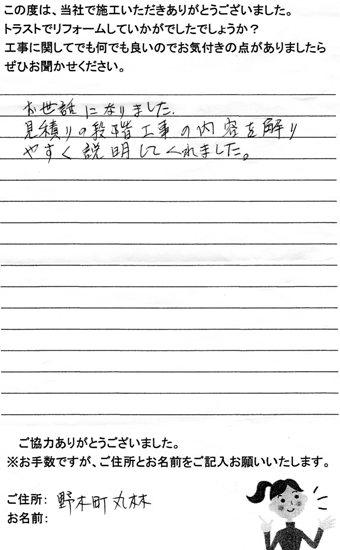 この度は、当社で施工いただきありがとうございました。
トラストでリフォームしていかがでしたでしょうか？
工事に関してでも何でも良いのでお気付きの点がありましたら
ぜひお聞かせください。
お世話になりました.
見積りの段階工事の内容を解り
やすく説明してくれました。
ご協力ありがとうございました。
※お手数ですが、ご住所とお名前をご記入お願いいたします。
ご住所: 野木町丸林
お名前: